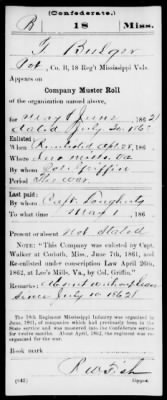 (Confederate.)
B 18 Miss.
Bulger
Pvt., Co. B, 18 Reg't Mississippi Vols.
Appears on
Company Muster Roll
of the organization named above,
for May & June, 1862
dated July 20 186
Enlisted:
When
Where Lees Mills, Va
By whom Col Griffin
Period The War
Last paid:
By whom Capt.
To what time May 1, 186
Present or absent Not Stated
NOTE: "This Company was enlisted by Capt.
Walker at Corinth, Miss., June 7th, 1861, and
Re-enlisted under conscription Law April 26th,
1862, at Lee's Mills, Va., by Col. Griffin."
Remarks: Absent without leave
Since July 10 1862
The 18th Regiment Mississippi Infantry was organized in
June, 1861, of companies which had previously been in the
State service and was mustered into the Confederate service
for twelve months. About April, 1862, the regiment was
re-organized.
Book mark
(642)